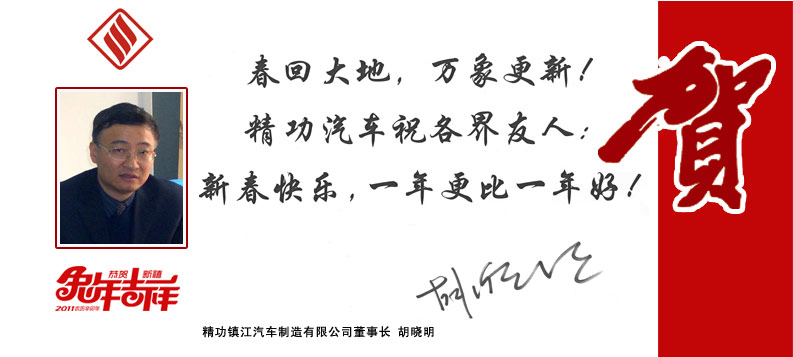 春回大地，万象更新！
精功汽车祝各界友人：
新春快乐，一年更比一年好！
贺
恭贺 新禧
兔年吉祥
2011
精功镇江汽车制造有限公司董事长 胡晓明